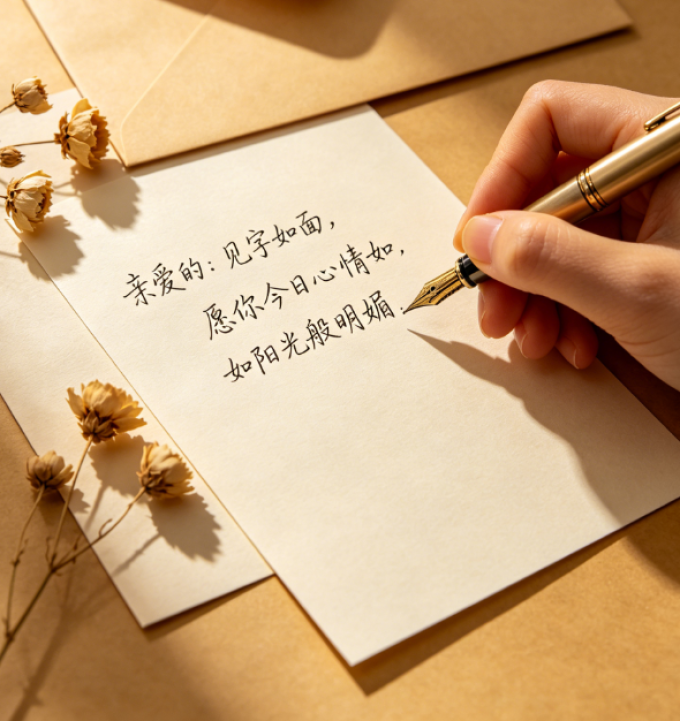 亲爱的：见字如面，
愿你今日心情如，
如阳光般明媚.